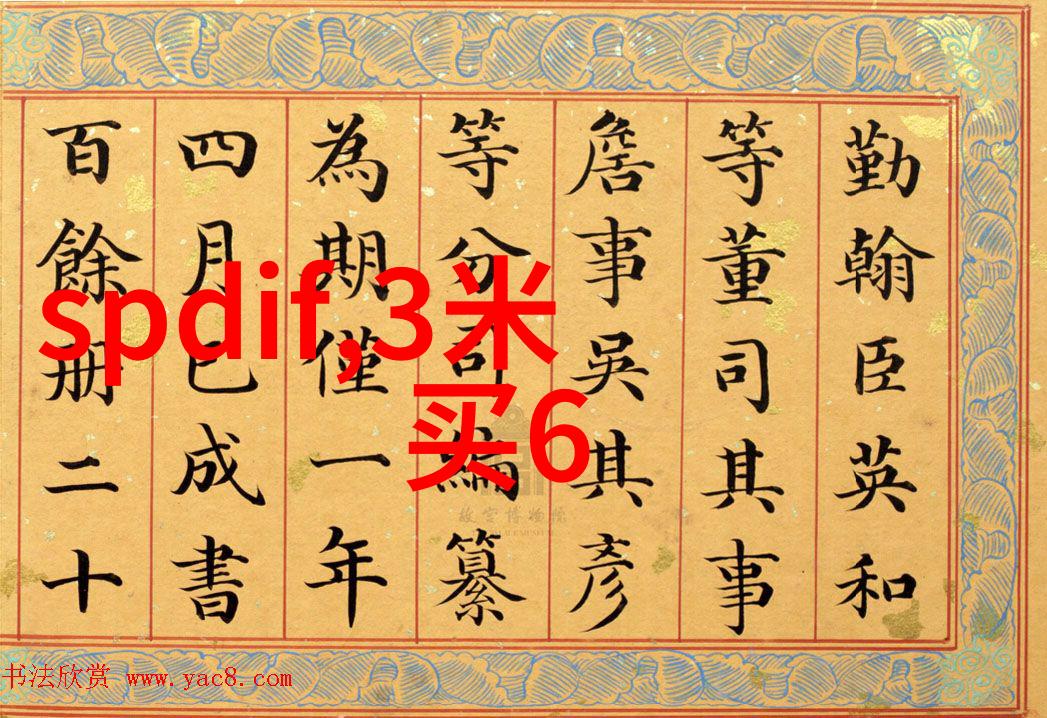 勤翰臣英和
等董司其事
詹事吳其彥
等分司編纂
為期僅一年
四月已成書
百餘册二十
spdif,3米
买6
故宫博物院
书法欣赏 www.yac8.com